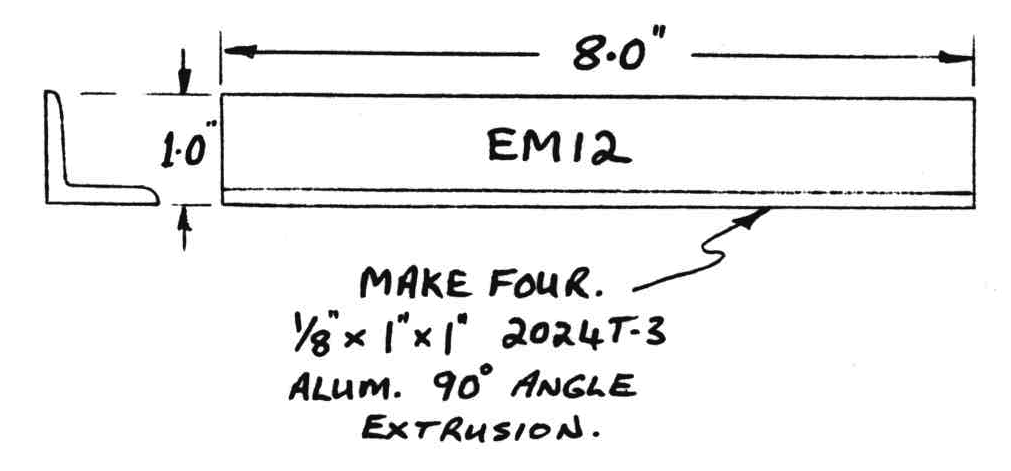 8.0"
1.0"
EM12
MAKE FOUR.
1/8" x 1" x 1" 2024T-3
ALUM. 90° ANGLE
EXTRUSION.